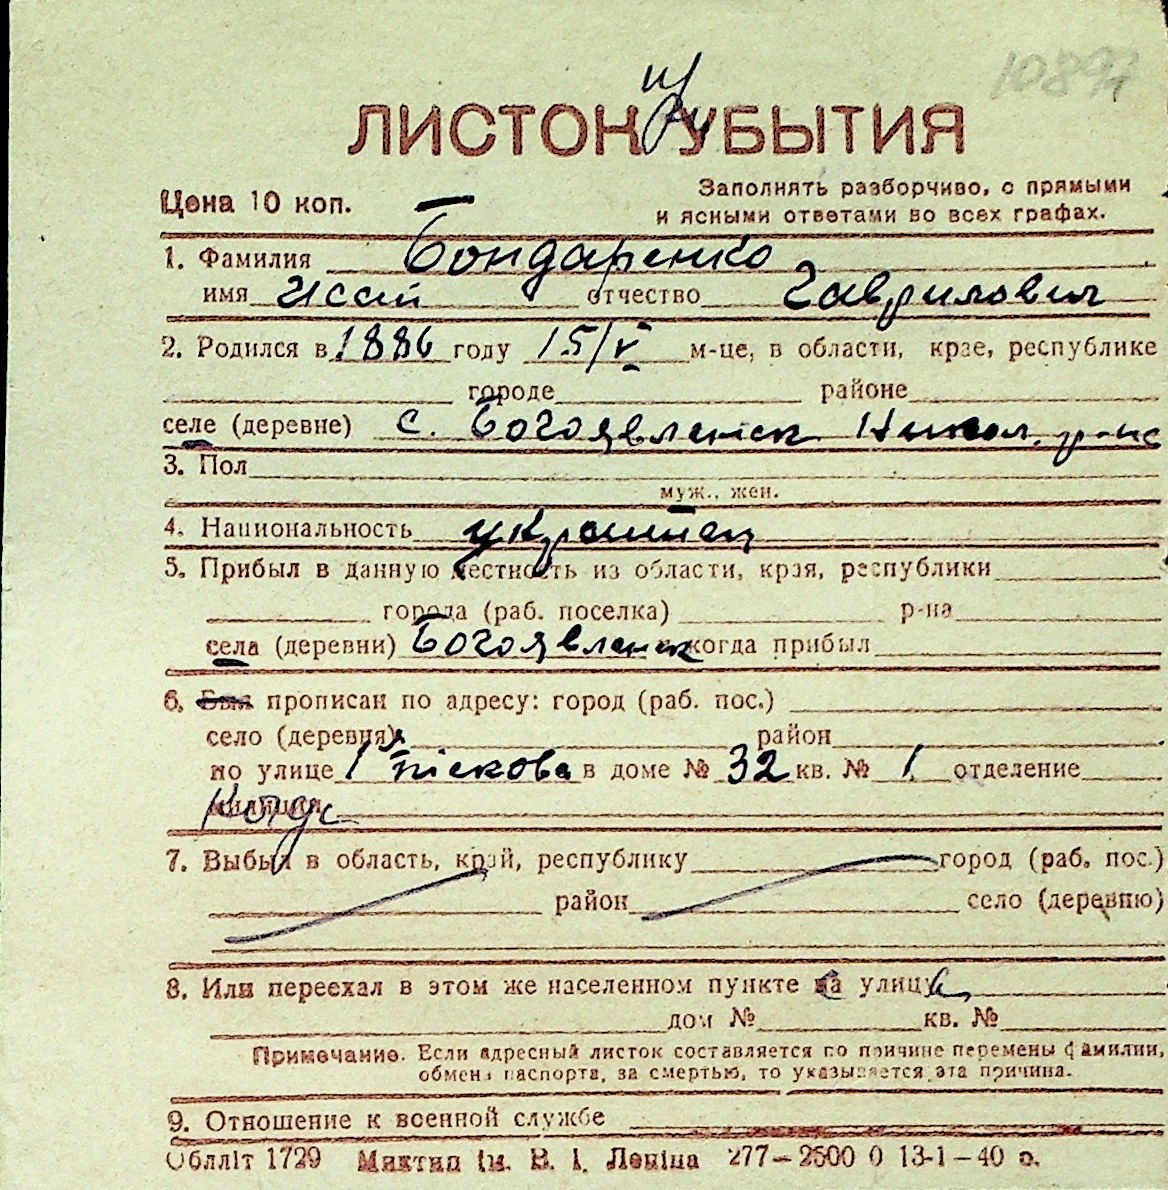 10897
ЛИСТОК УБЫТИЯ
Цена 10 коп.
Заполнять разборчиво, с прямыми
и ясными ответами во всех графах.
1. Фамилия Бондаренко
имя Исай отчество Гаврилович
2. Родился в 1886 году 15/V м-це, в области, крае, республике
городе районе
селе (деревне) с. Богоявленск Никол. р-на
3. Пол
муж., жен.
4. Национальность украинец
5. Прибыл в данную местность из области, края, республики
города (раб. поселка) р-на
села (деревни) Богоявленск и когда прибыл
6. Был прописан по адресу: город (раб. пос.)
село (деревня) район
по улице 1 піскова в доме № 32 кв. № 1 отделение
милиции
7. Выбыл в область, край, республику город (раб. пос.)
район село (деревню)
8. Или переехал в этом же населенном пункте на улицу
дом № кв. №
Примечание. Если адресный листок составляется по причине перемены фамилии,
обмена паспорта, за смертью, то указывается эта причина.
9. Отношение к военной службе
Обллiт 1729 Миктип iм. В. I. Ленiна 277—2500 0 13-1—40 р.